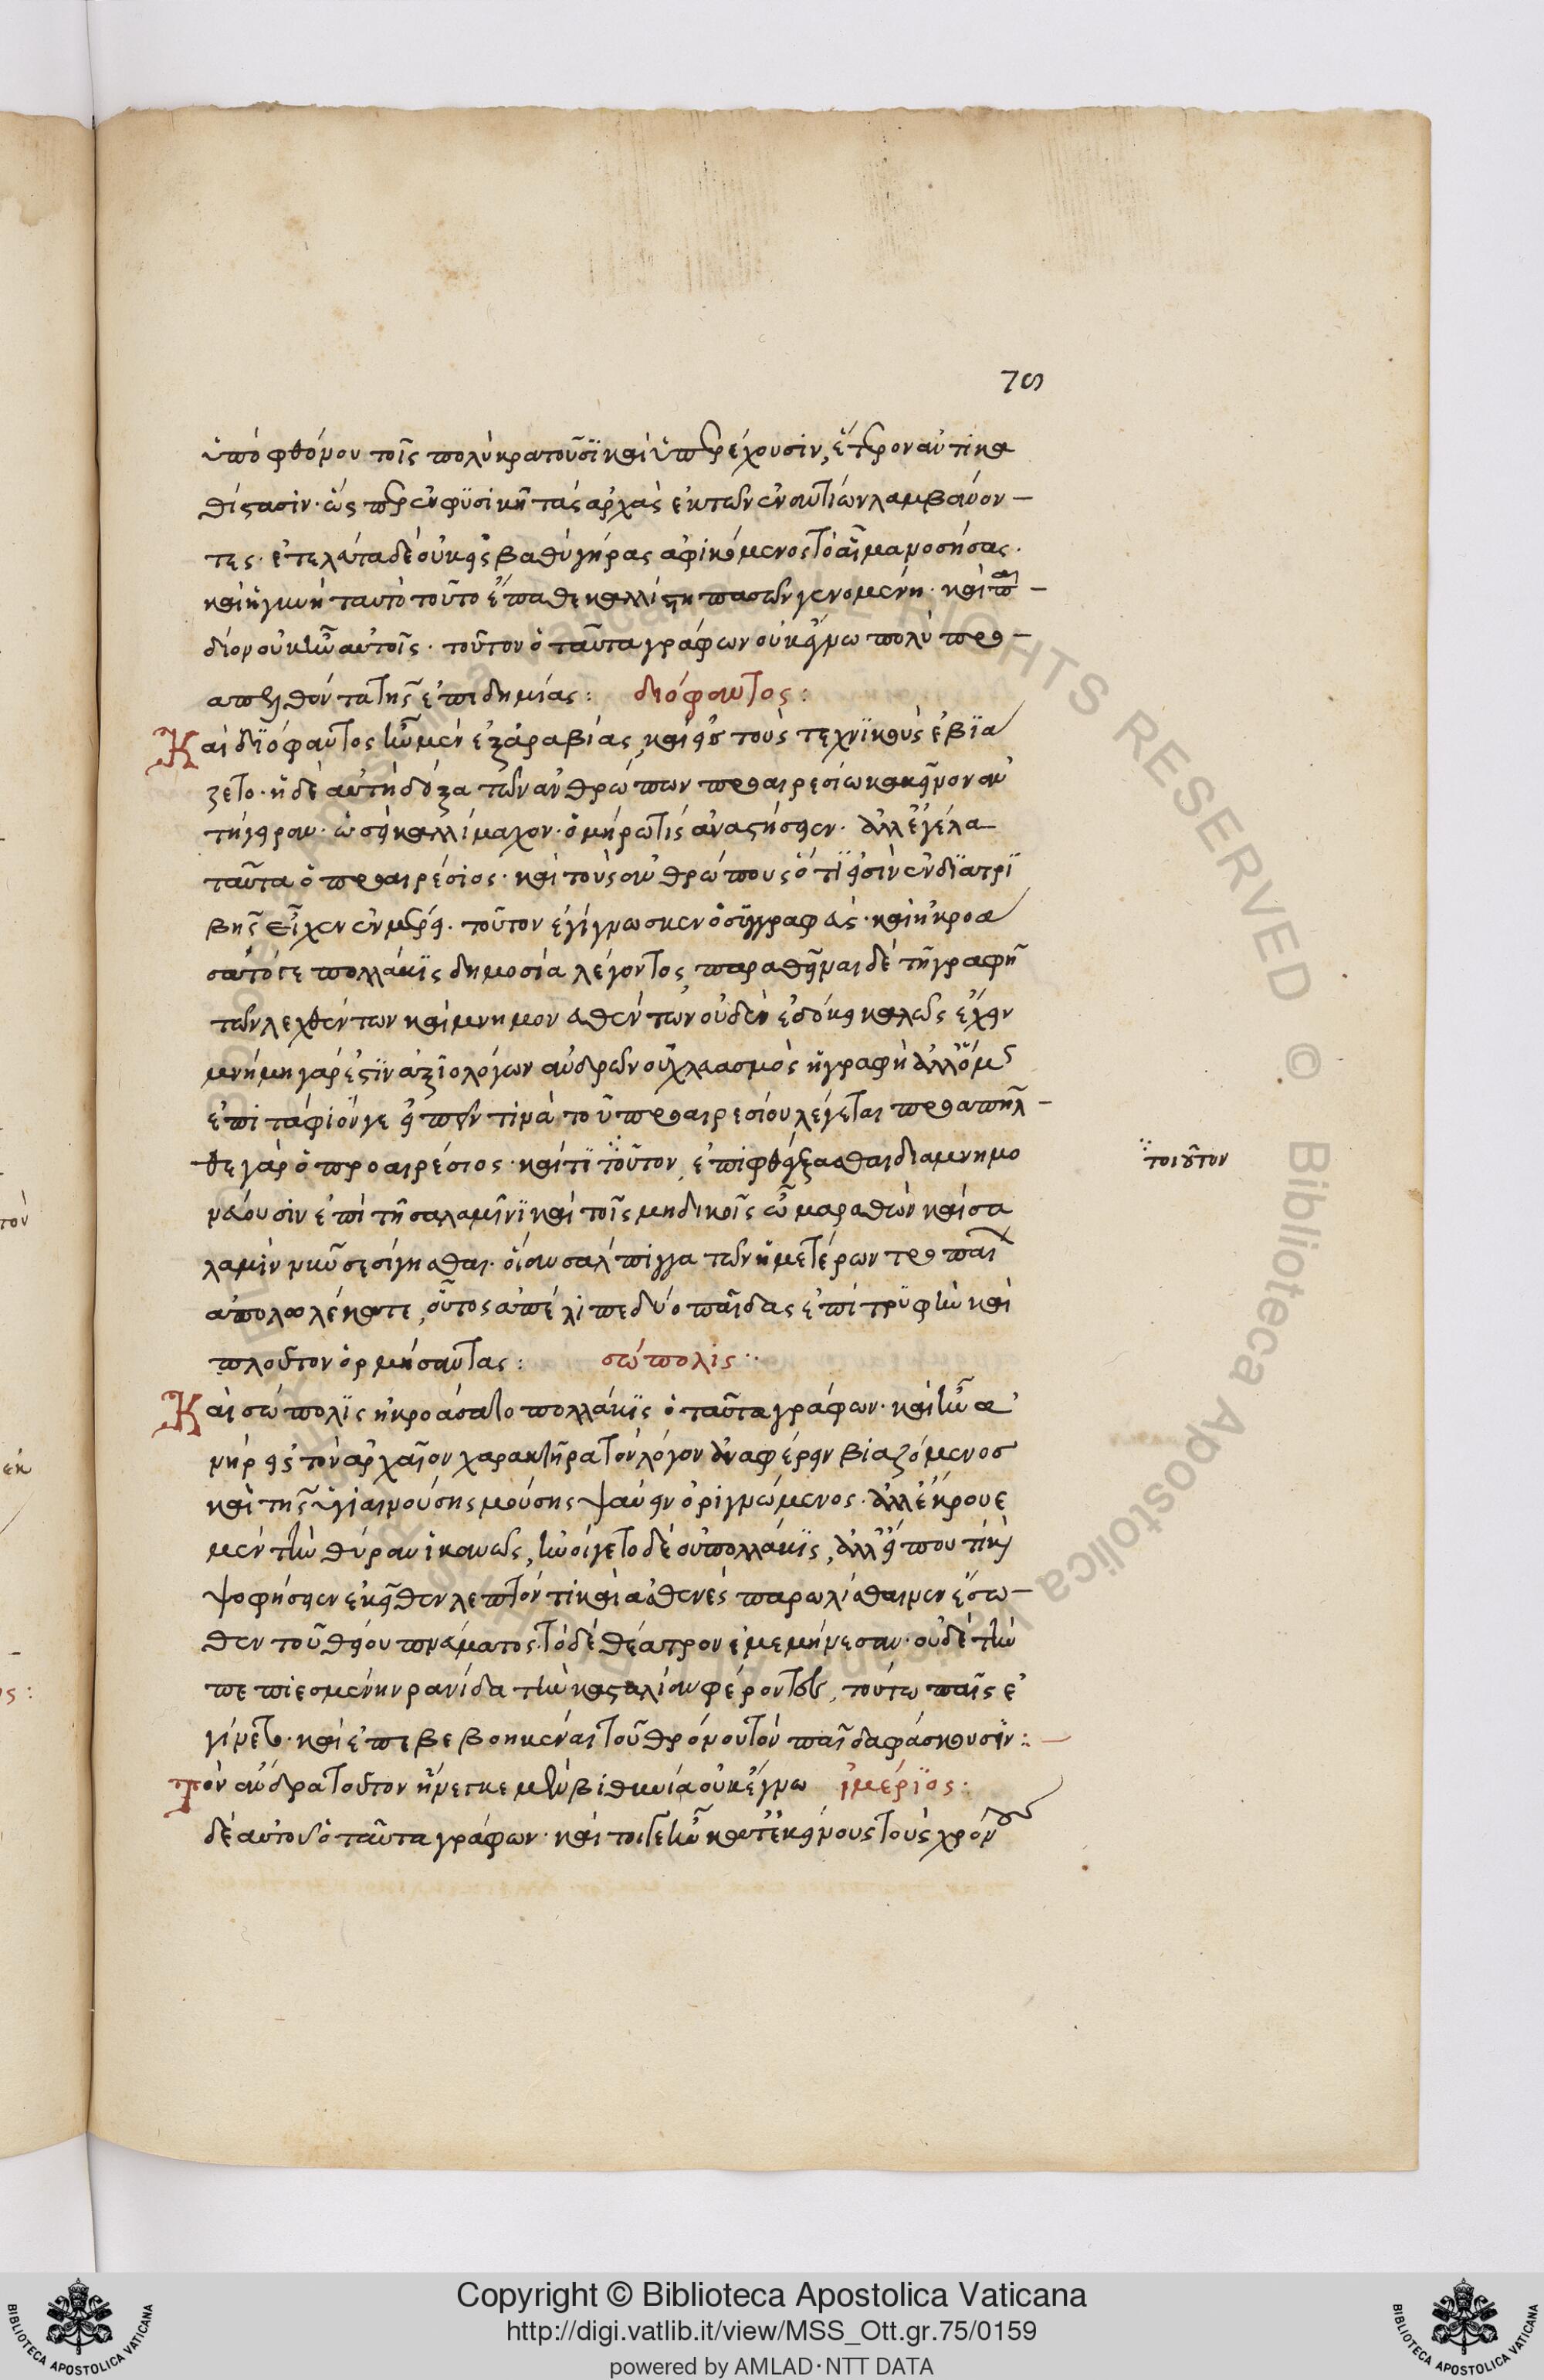 76
ὑπὸ φθόνου τοῖς πολὺ κρατοῦσϊ καὶ ὑπερέχουσιν, ἕτερον ἀντικα
θίστασιν· ὥσπερ ἐν φϋσικῆ τὰς ἀρχὰς ἐκ τῶν ἐναντίων λαμβάνον-
τες· ἐτελεύτα δὲ οὐκ εἰς βαθὺ γῆρας ἀφικόμενος τὸ αἷμα νοσήσας.
καὶ ἡ γυνὴ ταυτὸ τοῦτο ἔπαθε καλλίστη πασῶν γενομένη· καὶ παι-
δίον οὐκ ἦν αὐτοῖς. τοῦτον ὁ ταῦτα γράφων οὐκ ἔγνω πολὺ προ-
απελθόντα τῆς ἐπιδημίας: διόφαντος:
Καὶ διόφαντος ἦν μὲν ἐξ ἀραβίας, καὶ εἰς τοὺς τεχνϊκοὺς ἐβϊά
ζετο. ἡ δὲ αὐτὴ δόξα τῶν ἀνθρώπων προαιρεσίω κακεῖνον ἀν
τήγειρεν· ὡσεὶ καλλίμαχον ὁμήρω τὶς ἀναστήσειεν. ἀλλ ἐγέλα
ταῦτα ὁ προαιρέσιος. καὶ τοὺς ἀνθρώπους ὅ τϊ εἰσὶν ἐν δϊατρϊ
βῆς εἶχεν ἐν μέρει. τοῦτον ἐγίγνωσκεν ὁ συγγραφεύς. καὶ ἠκροά
σατό γε πολλάκϊς δημοσία λέγοντος, παραθεῖναι δὲ τῆ γραφῆ
τῶν λεχθέντων καὶ μνημονευθέντων οὐδὲν ἐδόκει καλῶς ἔχειν
μνήμη γάρ ἐστϊν ἀξϊολόγων ἀνδρῶν οὐ χλευασμὸς ἡ γραφὴ ἀλλ ὅμως
ἐπιτάφιόν γε εἰπεῖν τινὰ τοῦ προαιρεσίου λέγεται προαπῆλ-
θε γὰρ ὁ προαιρέσιος. καί τϊ τοῦτον, ἐπιφθέγξασθαι διαμνημο
νεύουσιν ἐπὶ τῆ σαλαμῖνϊ καὶ τοῖς μηδικοῖς ὦ μαραθὼν καὶ σα
λαμὶν νῦν σεσίγησθαι. οἵαν σάλπιγγα τῶν ἡμετέρων τροπαίων
ἀπολωλέκατε, οὗτος ἀπέλιπε δύο παῖδας ἐπὶ τρϋφὴν καὶ
πλοῦτον ὁρμήσαντας: σώπολις··
Καὶ σωπόλϊς ἠκροάσατο πολλάκϊς ὁ ταῦτα γράφων. καὶ ἦν ἀ
νὴρ εἰς τὸν ἀρχαῖον χαρακτῆρα τὸν λόγον ἀναφέρειν βιαζόμενος
καὶ τῆς ὑγιαινούσης μούσης ψαύειν ὀριγνώμενος. ἀλλ ἔκρουε
μὲν τὴν θύραν ἱκανῶς, ἠνοίγετο δὲ οὐ πολλάκϊς, ἀλλ εἴ πού τι καὶ
ψοφήσειεν ἐκεῖθεν λεπτόν τι καὶ ἀσθενὲς παρωλίσθαινεν ἔσω-
θεν τοῦ θείου πνεύματος. τὸ δὲ θέατρον ἐμεμήνεσαν. οὐδὲ τὴν
πεπιεσμένην ρανίδα τὴν κασταλίαν φέροντες, τούτω παῖς ἐ
γίνετο. καὶ ἐπιβεβοηκέναι τοῦ θρόνου τὸν παῖδα φάσκουσϊν:
Τὸν ἄνδρα τοῦτον ἤνεγκε μὲν βιθυνία οὐκ ἔγνω ἱμέρϊος:
δὲ αὐτὸν ὁ ταῦτα γράφων. καί τοι γε ἦν κατ ἐκείνους τοὺς χρόνους
τοιοῦτον
Copyright © Biblioteca Apostolica Vaticana
http://digi.vatlib.it/view/MSS_Ott.gr.75/0159
powered by AMLAD·NTT DATA